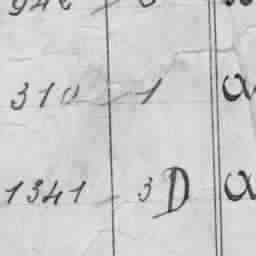 310 - 1 a
1341 - 3 D a